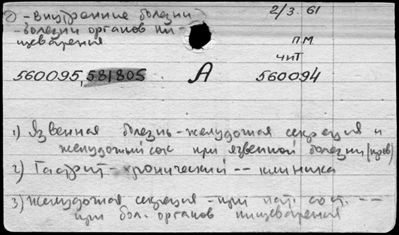 ② - внутренние болезни 2/3. 61
- болезни органов пи-
щеварения П.М
ЧИТ
560095, 581805 А 560094
1) Язвенная болезнь - желудочная секреция и
желудочный сок при язвенной болезни
2) Гастрит - хронический -- клиника
3) Желудочная секреция - при пат. сост. --
при бол. органов пищеварения